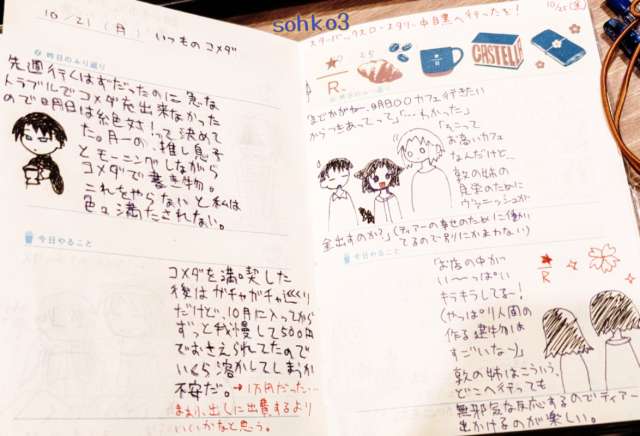 10/21 (月) いつものコメダ
昨日のふり返り
先週行くはずだったのに急な
トラブルでコメダ充出来なかった
ので明日は絶対!って決めて
た。月一の、推し息子
とモーニングしながら
コメダで書き物。
これをやらないと私は
色々満たされない。
今日やること
コメダを満喫した
後はガチャガチャ巡り
だけど、10月に入ってから
ずっと我慢して500円
でおさえられてたので
いくら溶かしてしまうか
不安だ。→1万円だった…
まぁ、出しに出費するより
いいかなと思う。
sohko3
スターバックスロースタリー中目黒へ行ったよ!
10/25(金)
R
CASTELLA
明日○○カフェ行きたい
からつきあってって」「…わかった」
「えこって
お高いカフェ
なんだけど…
敦の妹の
食生のために
ウン
金出すのか?」(ティアーの幸せのために働い
てるので別にかまわない)
今日やること
「お店の中がっ
い〜っぱい
キラキラしてる〜!
(やっぱり人間の
作る建物は
すごいな〜)」
R
敦の妹はこういう、
どこへ行っても
無邪気な反応するのでティアー
出かけるのが楽しい。